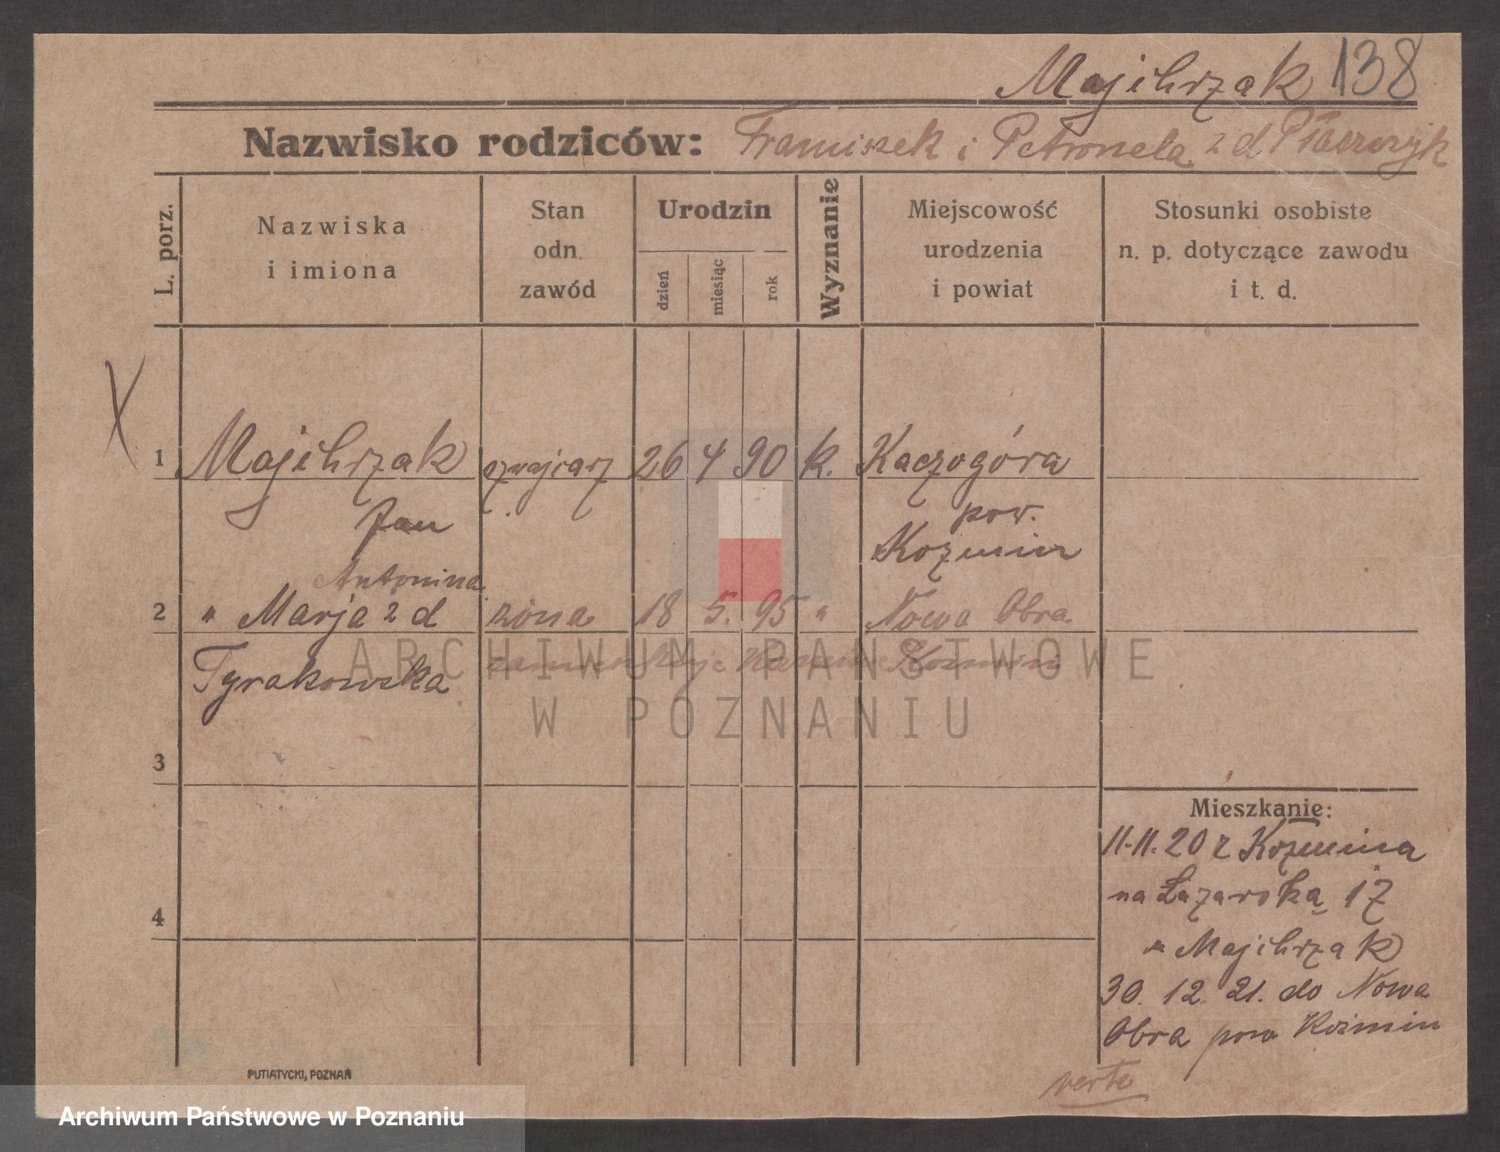 Majchrzak 138
Nazwisko rodziców: Franciszek i Petronela z d
L. porz.
Nazwiska
i imiona
Stan
odn.
zawód
Urodzin
dzień
miesiąc
rok
Wyznanie
Miejscowość
urodzenia
i powiat
Stosunki osobiste
n. p. dotyczące zawodu
i t. d.
X
1 Majchrzak szwajcarz 26 4 90 k. Kaczogóra
Jan
pow.
Kozmin
Antonina
2 " Marja z d żona 18 5. 95 " Nowa Obra
Tyrakowska
Kozmin
3
4
Mieszkanie:
11.11.20 z Kozmina
na Łazarską 17
" Majchrzak
30. 12. 21. do Nowa
Obra pow Koźmin
verte
PUTIATYCKI, POZNAŃ
ARCHIWUM PAŃSTWOWE
W POZNANIU
Archiwum Państwowe w Poznaniu